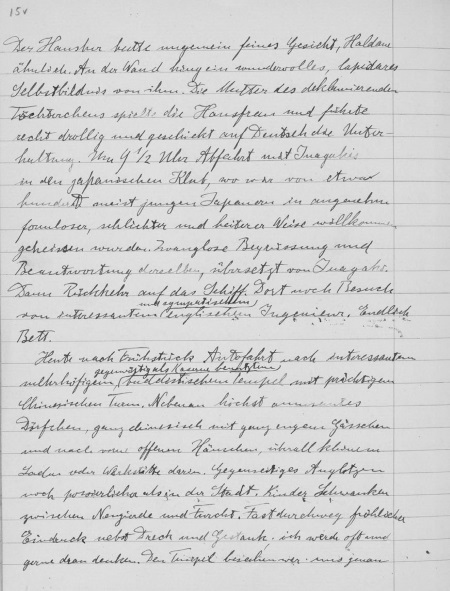 15v
Der Hausherr hatte ungemein feines Gesicht, Haldane
ähnlich. An der Wand hing ein wundervolles, lapidares
Selbstbildnis von ihm. Die Mutter des deklamierenden
Töchterchens spielte die Hausfrau und führte
recht drollig und geschickt auf Deutsch die Unter-
haltung. Um 9 1/2 Uhr Abfahrt mit Inagakis
in den japanischen Klub, wo wir von etwa
hundert meist jungen Japanern in angenehm
formloser, schlichter und heiterer Weise willkommen
geheissen wurden. Zwanglose Begrüssung und
Beantwortung derselben, übersetzt von Inagaki.
Dann Rückkehr auf das Schiff. Dort noch Besuch
von interessantem und sympatischem englischem Ingenieur. Endlich
Bett.
Heute nach Frühstück Autofahrt nach interessantem
mehrhöfigem, gegenwärtig als Kaserne benutztem buddistischem Tempel mit prächtigem
Chinesischem Turm. Nebenan höchst amusantes
Dörfchen, ganz chinesisch mit ganz engen Gässchen
und nach vorne offenen Häuschen, überall kleinem
Laden oder Werkstätte darin. Gegenseitiges Anglotzen
noch possierlicher als in der Stadt. Kinder Schwanken
zwischen Neugierde und Furcht. Fast durchweg fröhlicher
Eindruck nebst Dreck und Gestank. ich werde oft und
gerne dran denken. Den Tempel besahen wir uns genau